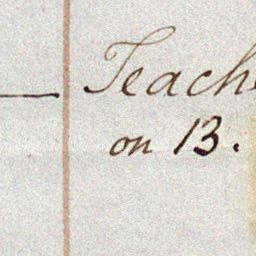 — Teach
on 13.